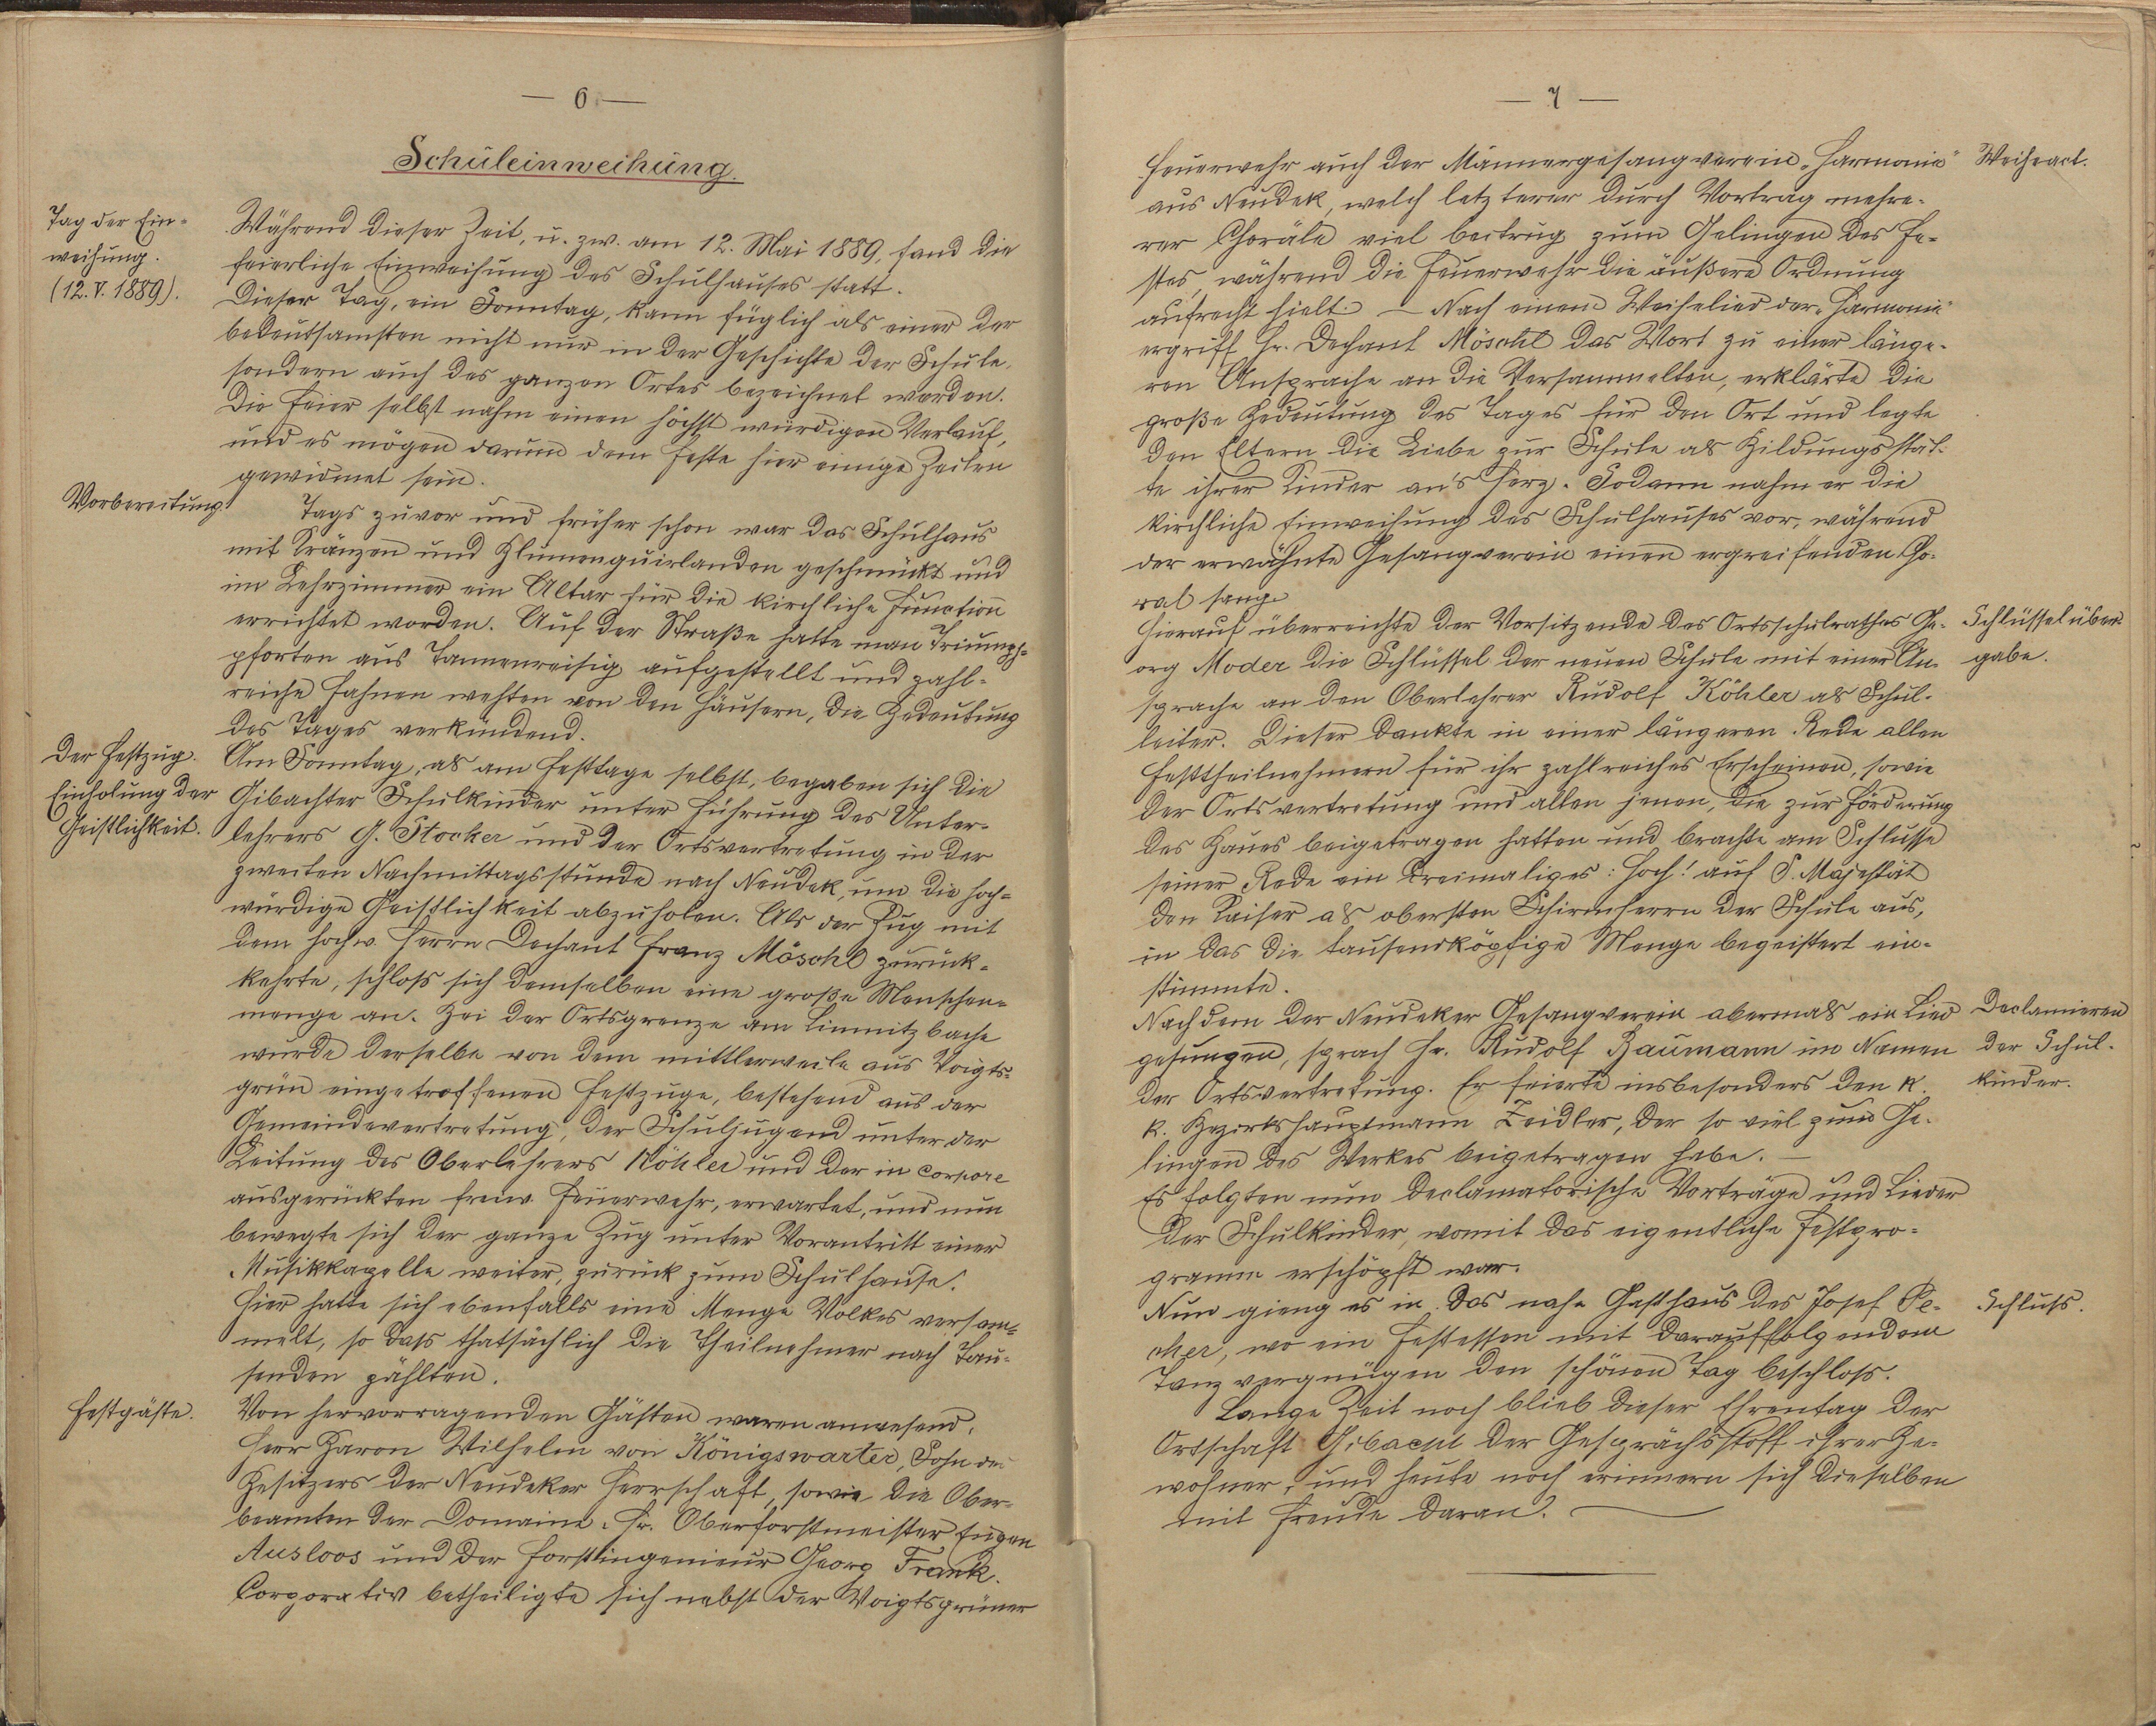 — 6 —
Schuleinweihung.
Tag der Ein-
weihung.
(12. V. 1889).
Während dieser Zeit, u. zw. am 12. Mai 1889, fand die
feierliche Einweihung des Schulhauses statt.
Dieser Tag, ein Sonntag, kann füglich als einer der
bedeutsamsten nicht nur in der Geschichte der Schule,
sondern auch des ganzen Ortes bezeichnet werden.
Die Feier selbst nahm einen höchst würdigen Verlauf,
und es mögen darum dem Feste hier einige Zeilen
gewidmet sein.
Vorbereitung.
Tags zuvor und früher schon war das Schulhaus
mit Kränzen und Blumenguirlanden geschmückt und
im Lehrzimmer ein Altar für die kirchliche Function
errichtet worden. Auf der Straße hatte man Triumph-
pforten aus Tannenreisig aufgestellt und zahl-
reiche Fahnen wehten von den Häusern, die Bedeutung
des Tages verkündend.
Der Festzug.
Einholung der
Geistlichkeit.
Am Sonntag, als am Festtage selbst, begaben sich die
Gibachter Schulkinder unter Führung des Unter-
lehrers G. Stocker und der Ortsvertretung in der
zweiten Nachmittagsstunde nach Neudek, um die hoch-
würdige Geistlichkeit abzuholen. Als der Zug mit
dem hochw. Herrn Dechant Franz Möschl zurück-
kehrte, schloss sich demselben eine große Menschen-
menge an. Bei der Ortsgrenze am Limnitzbache
wurde derselbe von dem mittlerweile aus Voigts-
grün eingetroffenen Festzuge, bestehend aus der
Gemeindevertretung, der Schuljugend unter der
Leitung des Oberlehrers Köhler und der in corpore
ausgerückten freiw. Feuerwehr, erwartet, und nun
bewegte sich der ganze Zug unter Vorantritt einer
Musikkapelle weiter, zurück zum Schulhause.
Hier hatte sich ebenfalls eine Menge Volkes versam-
melt, so dass thatsächlich die Theilnehmer nach Tau-
senden zählten.
Festgäste.
Von hervorragenden Gästen waren anwesend:
Herr Baron Wilhelm von Königswarter, Sohn des
Besitzers der Neudeker Herrschaft, sowie die Ober-
beamten der Domaine: Hr. Oberforstmeister Eugen
Ausloos und der Forstingenieur Georg Frank.
Corporativ betheiligte sich nebst der Voigtsgrüner
— 7 —
Feuerwehr auch der Männergesangverein „Harmonie"
Weiheact.
aus Neudek, welch letzterer durch Vortrag mehre-
rer Choräle viel beitrug zum Gelingen des Fe-
stes, während die Feuerwehr die äußere Ordnung
aufrecht hielt. — Nach einem Weihelied der „Harmonie"
ergriff Hr. Dechant Möschl das Wort zu einer länge-
ren Ansprache an die Versammelten, erklärte die
große Bedeutung des Tages für den Ort und legte
den Eltern die Liebe zur Schule als Bildungsstät-
te ihrer Kinder an's Herz. Sodann nahm er die
kirchliche Einweihung des Schulhauses vor, während
der erwähnte Gesangverein einen ergreifenden Cho-
ral sang.
Hierauf überreichte der Vorsitzende des Ortsschulrathes Ge-
Schlüsselüber-
gabe.
org Moder die Schlüssel der neuen Schule mit einer An-
sprache an den Oberlehrer Rudolf Köhler als Schul-
leiter. Dieser dankte in einer längeren Rede allen
Festtheilnehmern für ihr zahlreiches Erscheinen, sowie
der Ortsvertretung und allen jenen, die zur Förderung
des Baues beigetragen hatten und brachte am Schlusse
seiner Rede ein dreimaliges: Hoch! auf S. Majestät
den Kaiser als obersten Schirmherrn der Schule aus,
in das die tausendköpfige Menge begeistert ein-
stimmte.
Nachdem der Neudeker Gesangverein abermals ein Lied
Declamieren
der Schul-
kinder.
gesungen, sprach Hr. Rudolf Baumann im Namen
der Ortsvertretung. Er feierte insbesonders den k.
k. Bezirkshauptmann Zeidler, der so viel zum Ge-
lingen des Werkes beigetragen habe. —
Es folgten nun declamatorische Vorträge und Lieder
der Schulkinder, womit das eigentliche Festpro-
gramm erschöpft war.
Nun gieng es in das nahe Gasthaus des Josef Pe-
Schluss.
cher, wo ein Festessen mit darauffolgendem
Tanzvergnügen den schönen Tag beschloss.
Lange Zeit noch blieb dieser Ehrentag der
Ortschaft Gibacht der Gesprächsstoff ihrer Be-
wohner, und heute noch erinnern sich dieselben
mit Freude daran. —